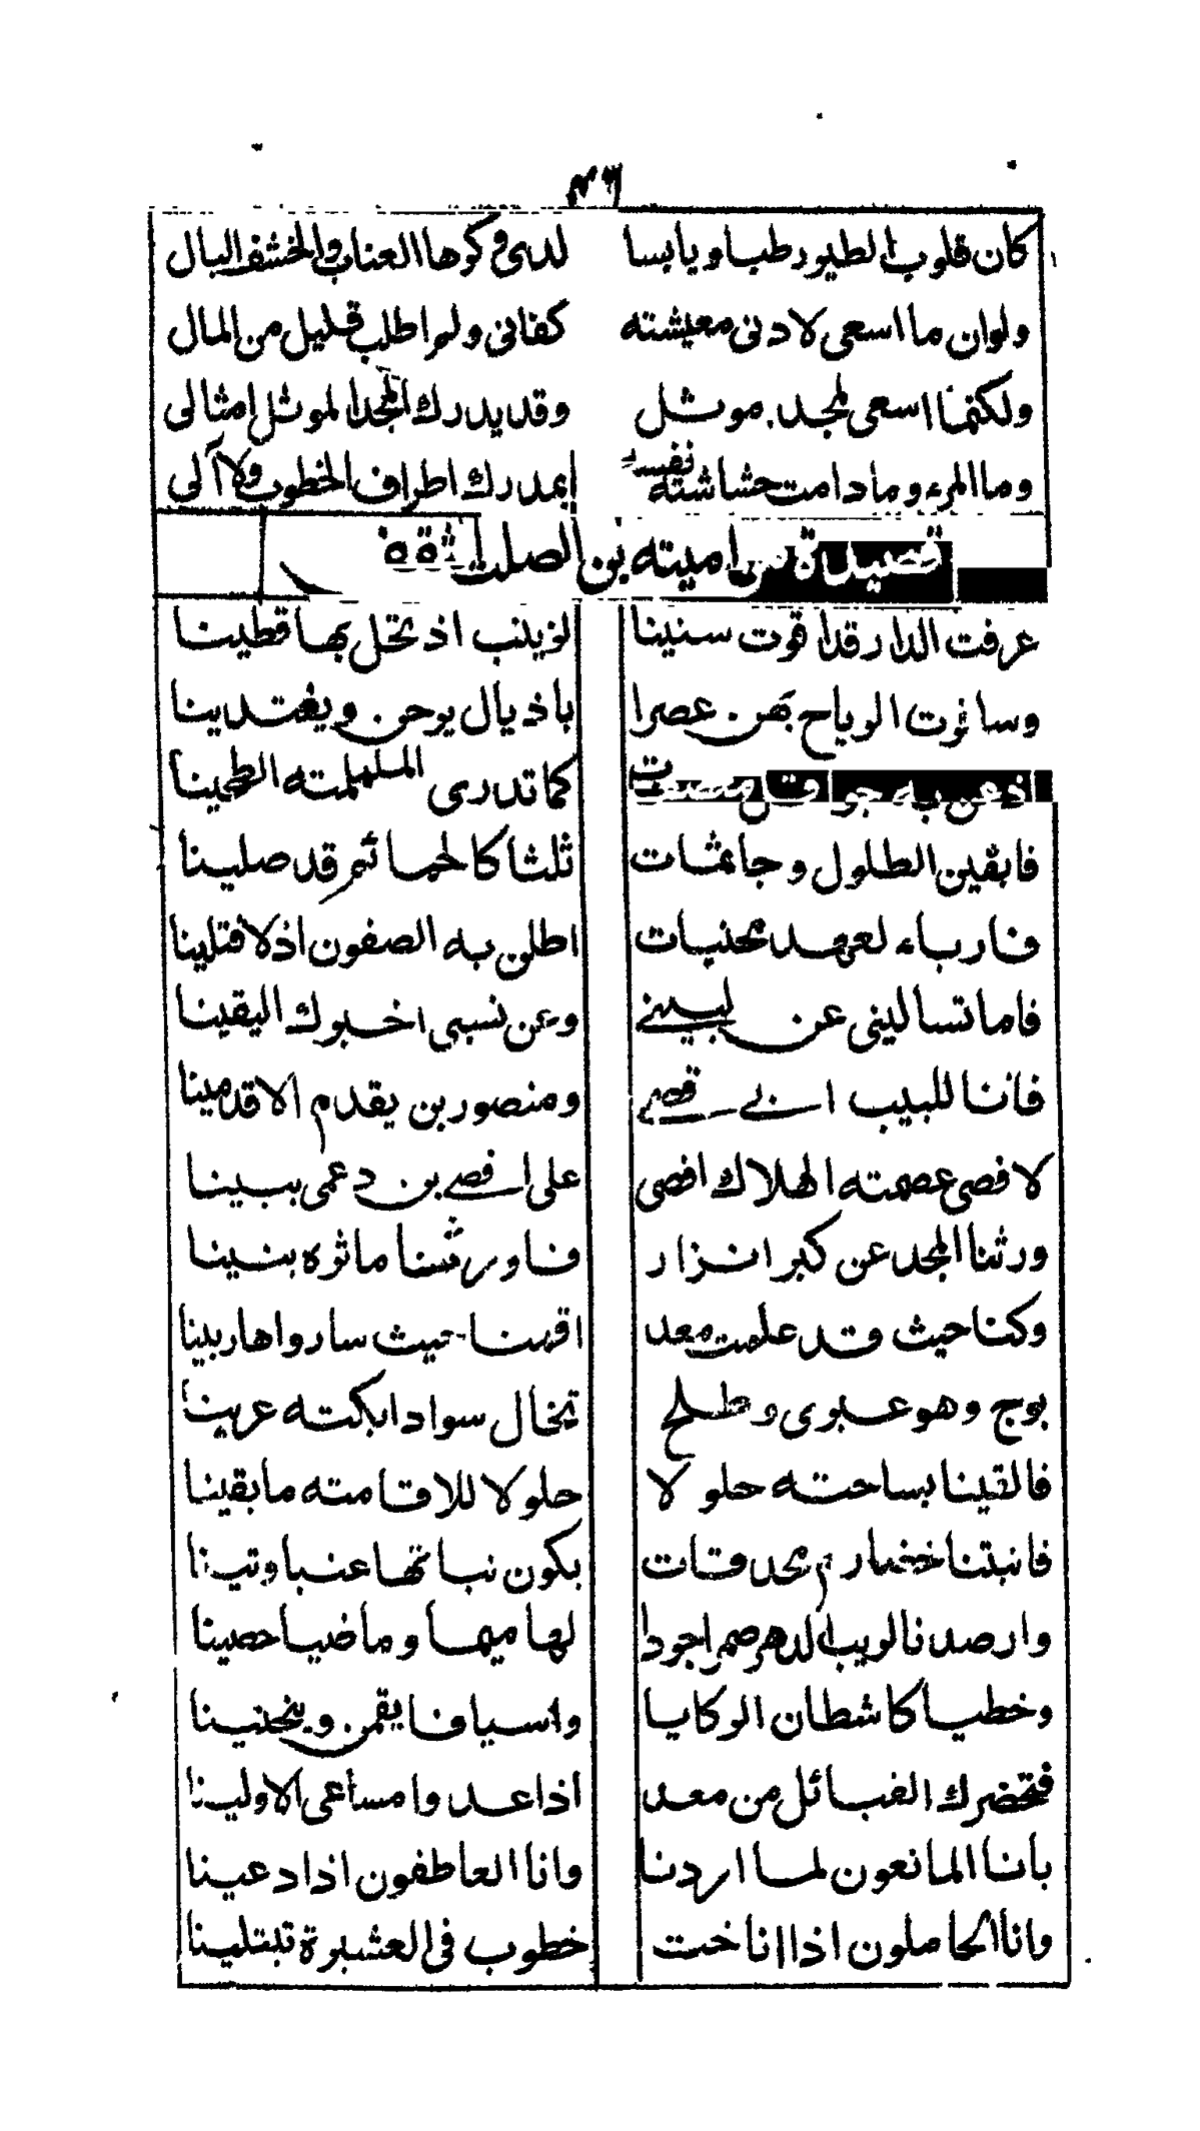 ٣٦
كان قلوب الطيور طبا ويابسا لدى وكرها العناب والخشف البال
ولوان ما اسعى لادنى معيشته كفانى ولم اطلب قليل من المال
ولكنما اسعى لمجد موثل وقد يدرك المجد الموثل امثالى
وما المرء وما دامت حشاشته نفسه بمدرك اطراف الخطوب ولا آلى
قصيدة من اميته بن الصلت الثقفى
عرفت الدار قد اقوت سنينا لزينب اذ تحل بها قطينا
وسا الرياح بهن عصرا باذيال يرحن ويغتدينا
كما تدرى الململمته الطحينا
فابقين الطلول وجاثمات ثلثا كالحمائم قد صلينا
فارباء لعهد محنيات اطلن به الصفون اذلافتلينا
فاما تسالينى عن لبينى وعن نسبى اخبرك اليقينا
فاننا للبيب ابى قصى ومنصور بن يقدم الاقدمينا
لافصى عصمته الهلاك افصى على افصى بن دعمى ببينا
ورثنا المجد عن كبرا نزار فاورثنا ماثره بنينا
وكنا حيث قد علمت معد اقمنا حيث ساروا هاربينا
بوج وهو عبرى وطلح تخال سواد ايكته عرينا
فالقينا بساحته حلولا حلولا للاقامته ما بقينا
فانبتنا خضارم محدقات يكون نباتها عنبا وتينا
وارصدنا لريب الدهر صمرا جودا لها ميما وماضيا حصينا
وخطيا كاشطان الركايا واسيافا يقمن وينحنينا
فتحضرك القبائل من معد اذا عدوا مساعى الاولينا
بانا المانعون لما اردنا وانا العاطفون اذا دعينا
وانا الحاملون اذا اناخت خطوب فى العشيرة تبتلينا